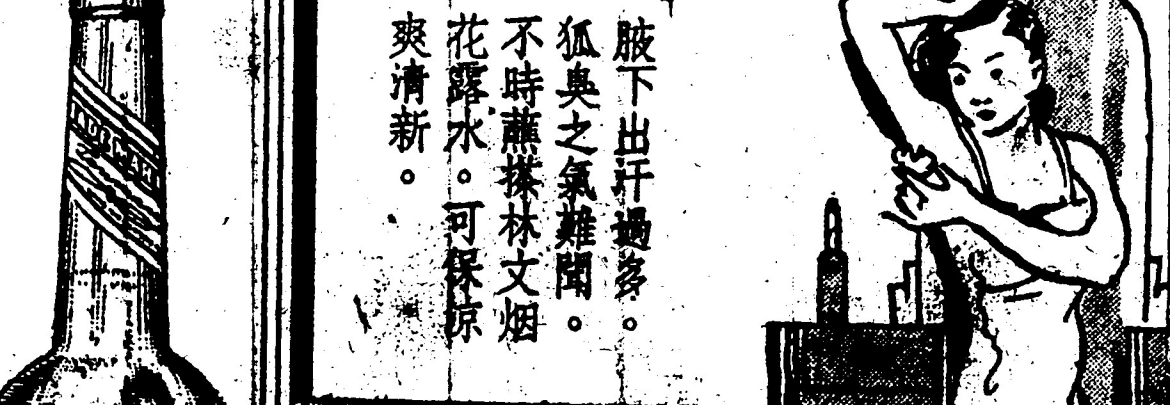 腋下出汗過多。
狐臭之氣難聞。
不時蘸搽林文烟
花露水。可保凉
爽清新。